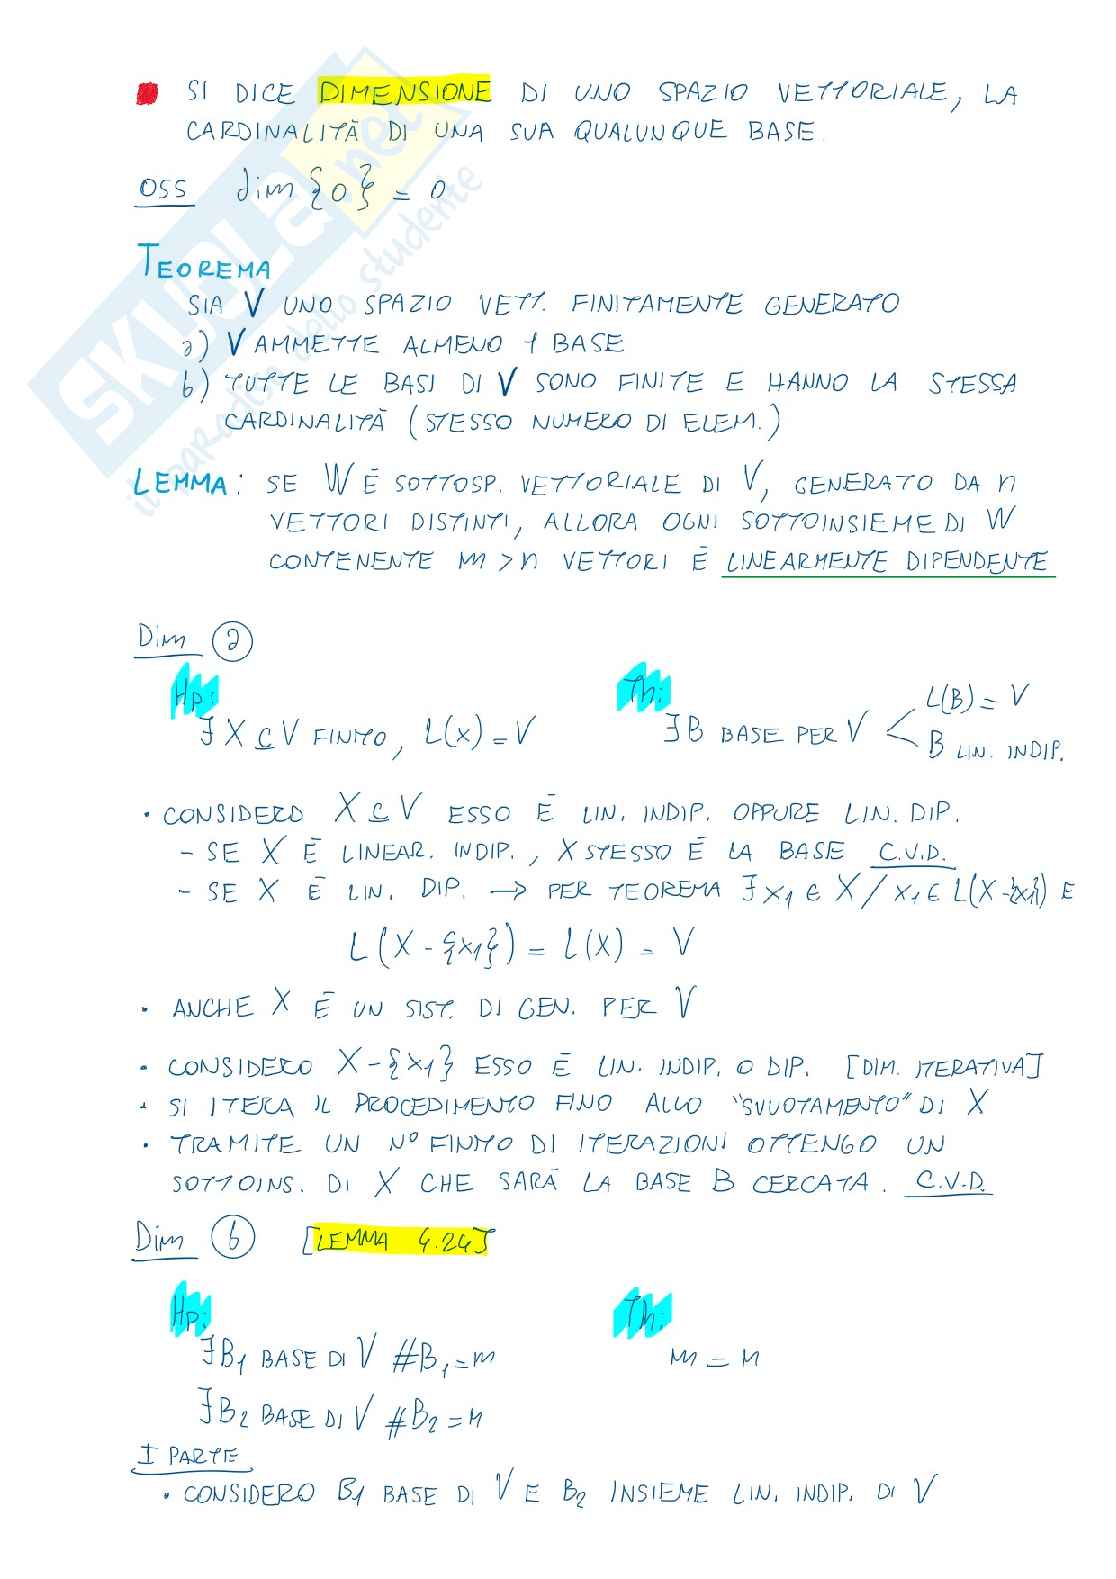 SI DICE DIMENSIONE DI UNO SPAZIO VETTORIALE, LA
CARDINALITÀ DI UNA SUA QUALUNQUE BASE.
OSS dim {0} = 0
TEOREMA
SIA V UNO SPAZIO VETT. FINITAMENTE GENERATO
a) V AMMETTE ALMENO 1 BASE
b) TUTTE LE BASI DI V SONO FINITE E HANNO LA STESSA
CARDINALITÀ (STESSO NUMERO DI ELEM.)
LEMMA: SE W È SOTTOSP. VETTORIALE DI V, GENERATO DA n
VETTORI DISTINTI, ALLORA OGNI SOTTOINSIEME DI W
CONTENENTE m > n VETTORI È LINEARMENTE DIPENDENTE
Dim (a)
Hp: Th:
∃ X ⊆ V FINITO, L(x) = V ∃ B BASE PER V < L(B) = V
B LIN. INDIP.
• CONSIDERO X ⊆ V ESSO È LIN. INDIP. OPPURE LIN. DIP.
- SE X È LINEAR. INDIP., X STESSO È LA BASE C.V.D.
- SE X È LIN. DIP. → PER TEOREMA ∃ x₁ ∈ X / x₁ ∈ L(X-{x₁}) E
L(X - {x₁}) = L(X) = V
• ANCHE X È UN SIST. DI GEN. PER V
• CONSIDERO X-{x₁} ESSO È LIN. INDIP. O DIP. [DIM. ITERATIVA]
• SI ITERA IL PROCEDIMENTO FINO ALLO "SVUOTAMENTO" DI X
• TRAMITE UN N° FINITO DI ITERAZIONI OTTENGO UN
SOTTOINS. DI X CHE SARÀ LA BASE B CERCATA. C.V.D.
Dim (b) [LEMMA 4.24]
Hp: Th:
∃ B₁ BASE DI V #B₁ = m m = n
∃ B₂ BASE DI V #B₂ = n
I PARTE
• CONSIDERO B₁ BASE DI V E B₂ INSIEME LIN. INDIP. DI V
SKUOLA.net
il paradiso dello studente